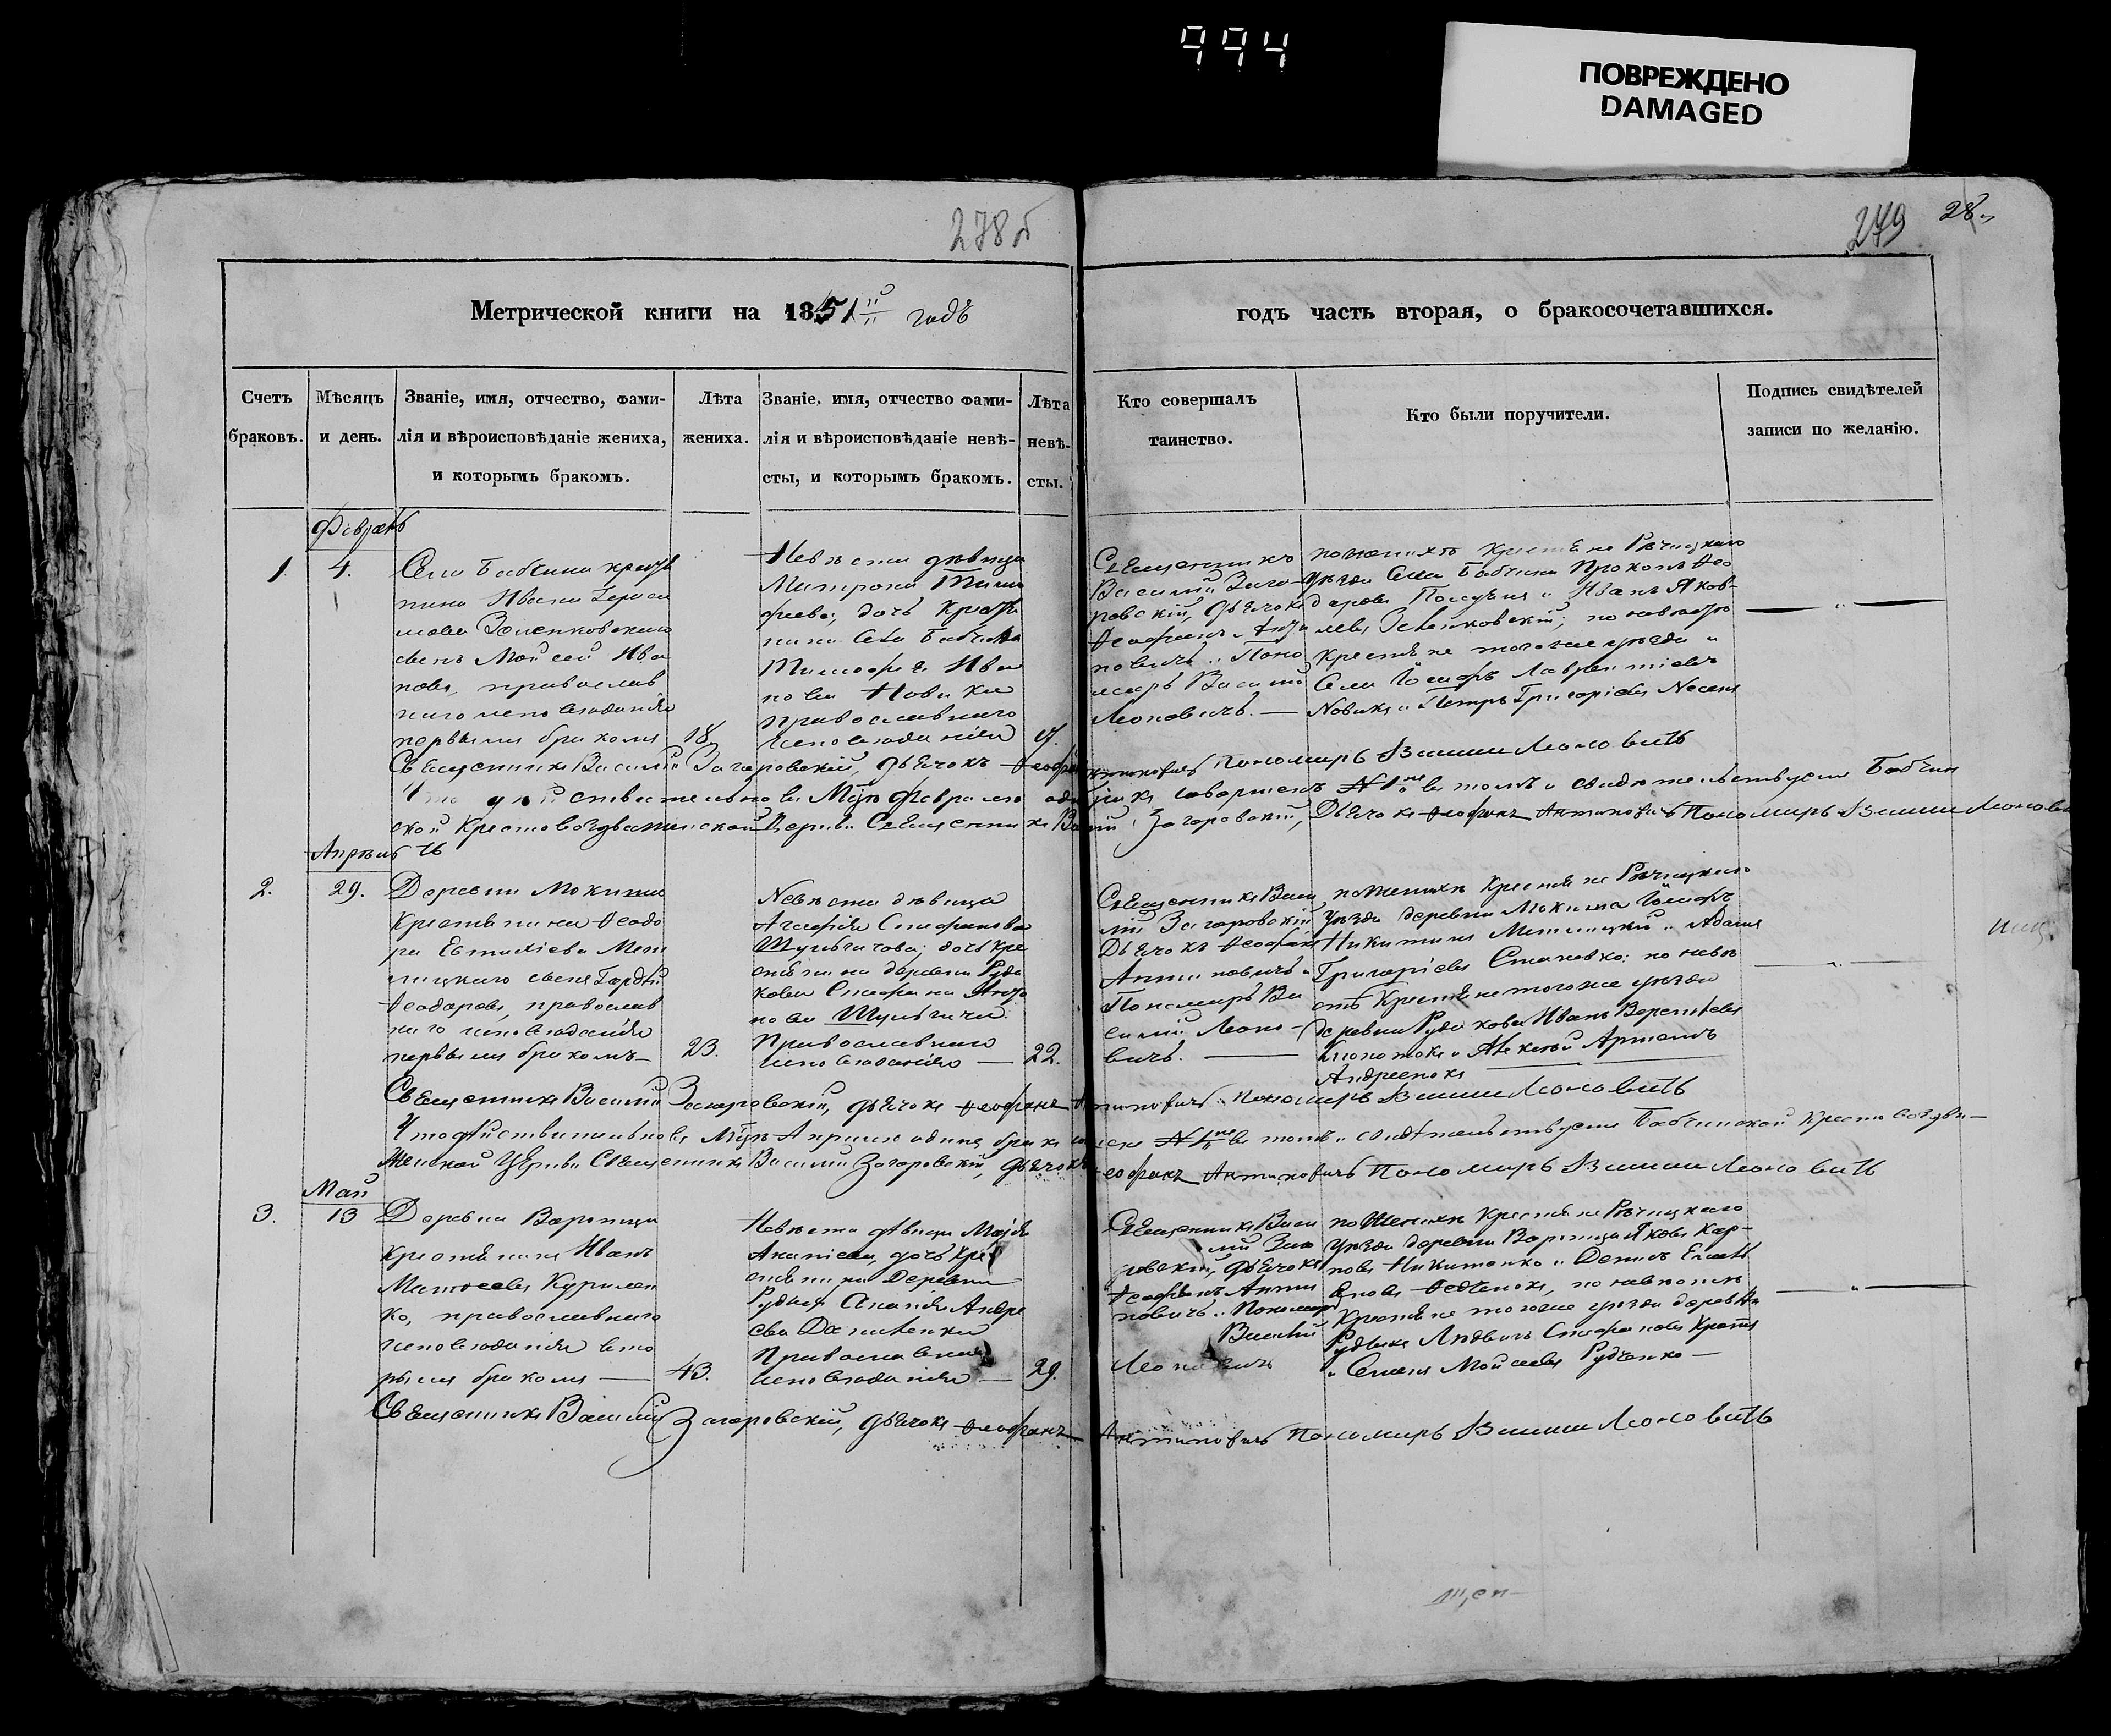 994
ПОВРЕЖДЕНО
DAMAGED
278б
279
28.
Метрической книги на 1851й годъ
годъ часть вторая, о бракосочетавшихся.
Счетъ браковъ.
Мѣсяцъ и день.
Званіе, имя, отчество, фами-
лія и вѣроисповѣданіе жениха,
и которымъ бракомъ.
Лѣта
жениха.
Званіе, имя, отчество фами-
лія и вѣроисповѣданіе невѣ-
сты, и которымъ бракомъ.
Лѣта
невѣ-
сты.
Кто совершалъ
таинство.
Кто были поручители.
Подпись свидѣтелей
записи по желанію.
Февраль
1.
4.
Села Бабчина крестья
нина Ивана
сынъ Мойсей Ива
новъ, православ
наго исповѣданія
первымъ бракомъ
18
Невѣста дѣвица
Матрона Тимо
феева, дочь крестья
нина Села Бабчина
Тимофея Ива
нова Новика
православнаго
исповѣданія
Священникъ
Василій Заго-
ровскій, дьячокъ
Феофанъ Анти
новичъ и Поно
марь Василій
Леоновичъ. —
по женихѣ крестьяне Рѣчицкаго
уѣзда Села Бабчина Прокопъ Фео
доровъ и Иванъ Яков-
левъ по невѣстѣ
крестьяне того же уѣзда
Села Іосифъ Лаврентіевъ
Новикъ и Петръ Григоріевъ
Священникъ Василій Загоровскій, дьячокъ Феофанъ Антиновичъ Пономарь Василій Леоновичъ
Что дѣйствительно въ Мцѣ Февралѣ одинъ бракъ совершенъ №1й въ томъ и свидѣтельствуемъ Бабчин
ской Крестовоздвиженской Церкви Священникъ Василій Загоровскій, Дьячокъ Феофанъ Антиновичъ Пономарь Василій Леоновичъ
Апрѣль
2.
29.
Деревни Мокиша
крестьянина Феодо
ра Евтихіева
сынъ Гордѣй
Феодоровъ, православ
наго исповѣданія
первымъ бракомъ —
23.
Невѣста дѣвица
Агафія Стефанова
Шульгичова; дочь кре
стьянина деревни Руда
кова Стефана Анто
нова Шульгича
Православнаго
исповѣданія —
22.
Священникъ Васи
лій Загоровскій
Дьячокъ Феофанъ
Антиновичъ и
Пономарь Ва
силій Леоно-
вичъ. —
по женихѣ крестьяне Рѣчицкаго
уѣзда деревни Мокиша Іосифъ
Никитинъ и Адамъ
Григоріевъ по невѣ
стѣ крестьяне того же уѣзда
деревни Рудакова Иванъ
и Алексѣй Артемовъ
Андреенокъ
Священникъ Василій Загоровскій, дьячокъ Феофанъ Антиновичъ Пономарь Василій Леоновичъ
Что дѣйствительно въ Мцѣ Апрѣлѣ одинъ бракъ №1й въ томъ и свидѣтельствуемъ Бабчинской Крестовоздви-
женской Церкви Священникъ Василій Загоровскій, дьячокъ Феофанъ Антиновичъ Пономарь Василій Леоновичъ
Май
3.
13
Деревни Воротца
крестьянинъ Иванъ
Матѳеевъ Курилен
ко, православнаго
исповѣданія вто
рымъ бракомъ —
43.
Невѣста дѣвица Марія
Ананіева, дочь кре
стьянина Деревни
Рудыя Ананія Андре
ева Даниленка
Православнаго
исповѣданія —
29.
Священникъ Васи
лій Заго
ровскій, дьячокъ
Феофанъ Анти
новичъ и Пономарь
Василій
Леоновичъ
по женихѣ крестьяне Рѣчицкаго
уѣзда деревни Воротца Яковъ Кар-
повъ Никитенко и
по невѣстѣ
крестьяне того же уѣзда деревни
Стефановъ
и Семенъ Мойсеевъ Рудченко —
Священникъ Василій Загоровскій, дьячокъ Феофанъ Антиновичъ Пономарь Василій Леоновичъ